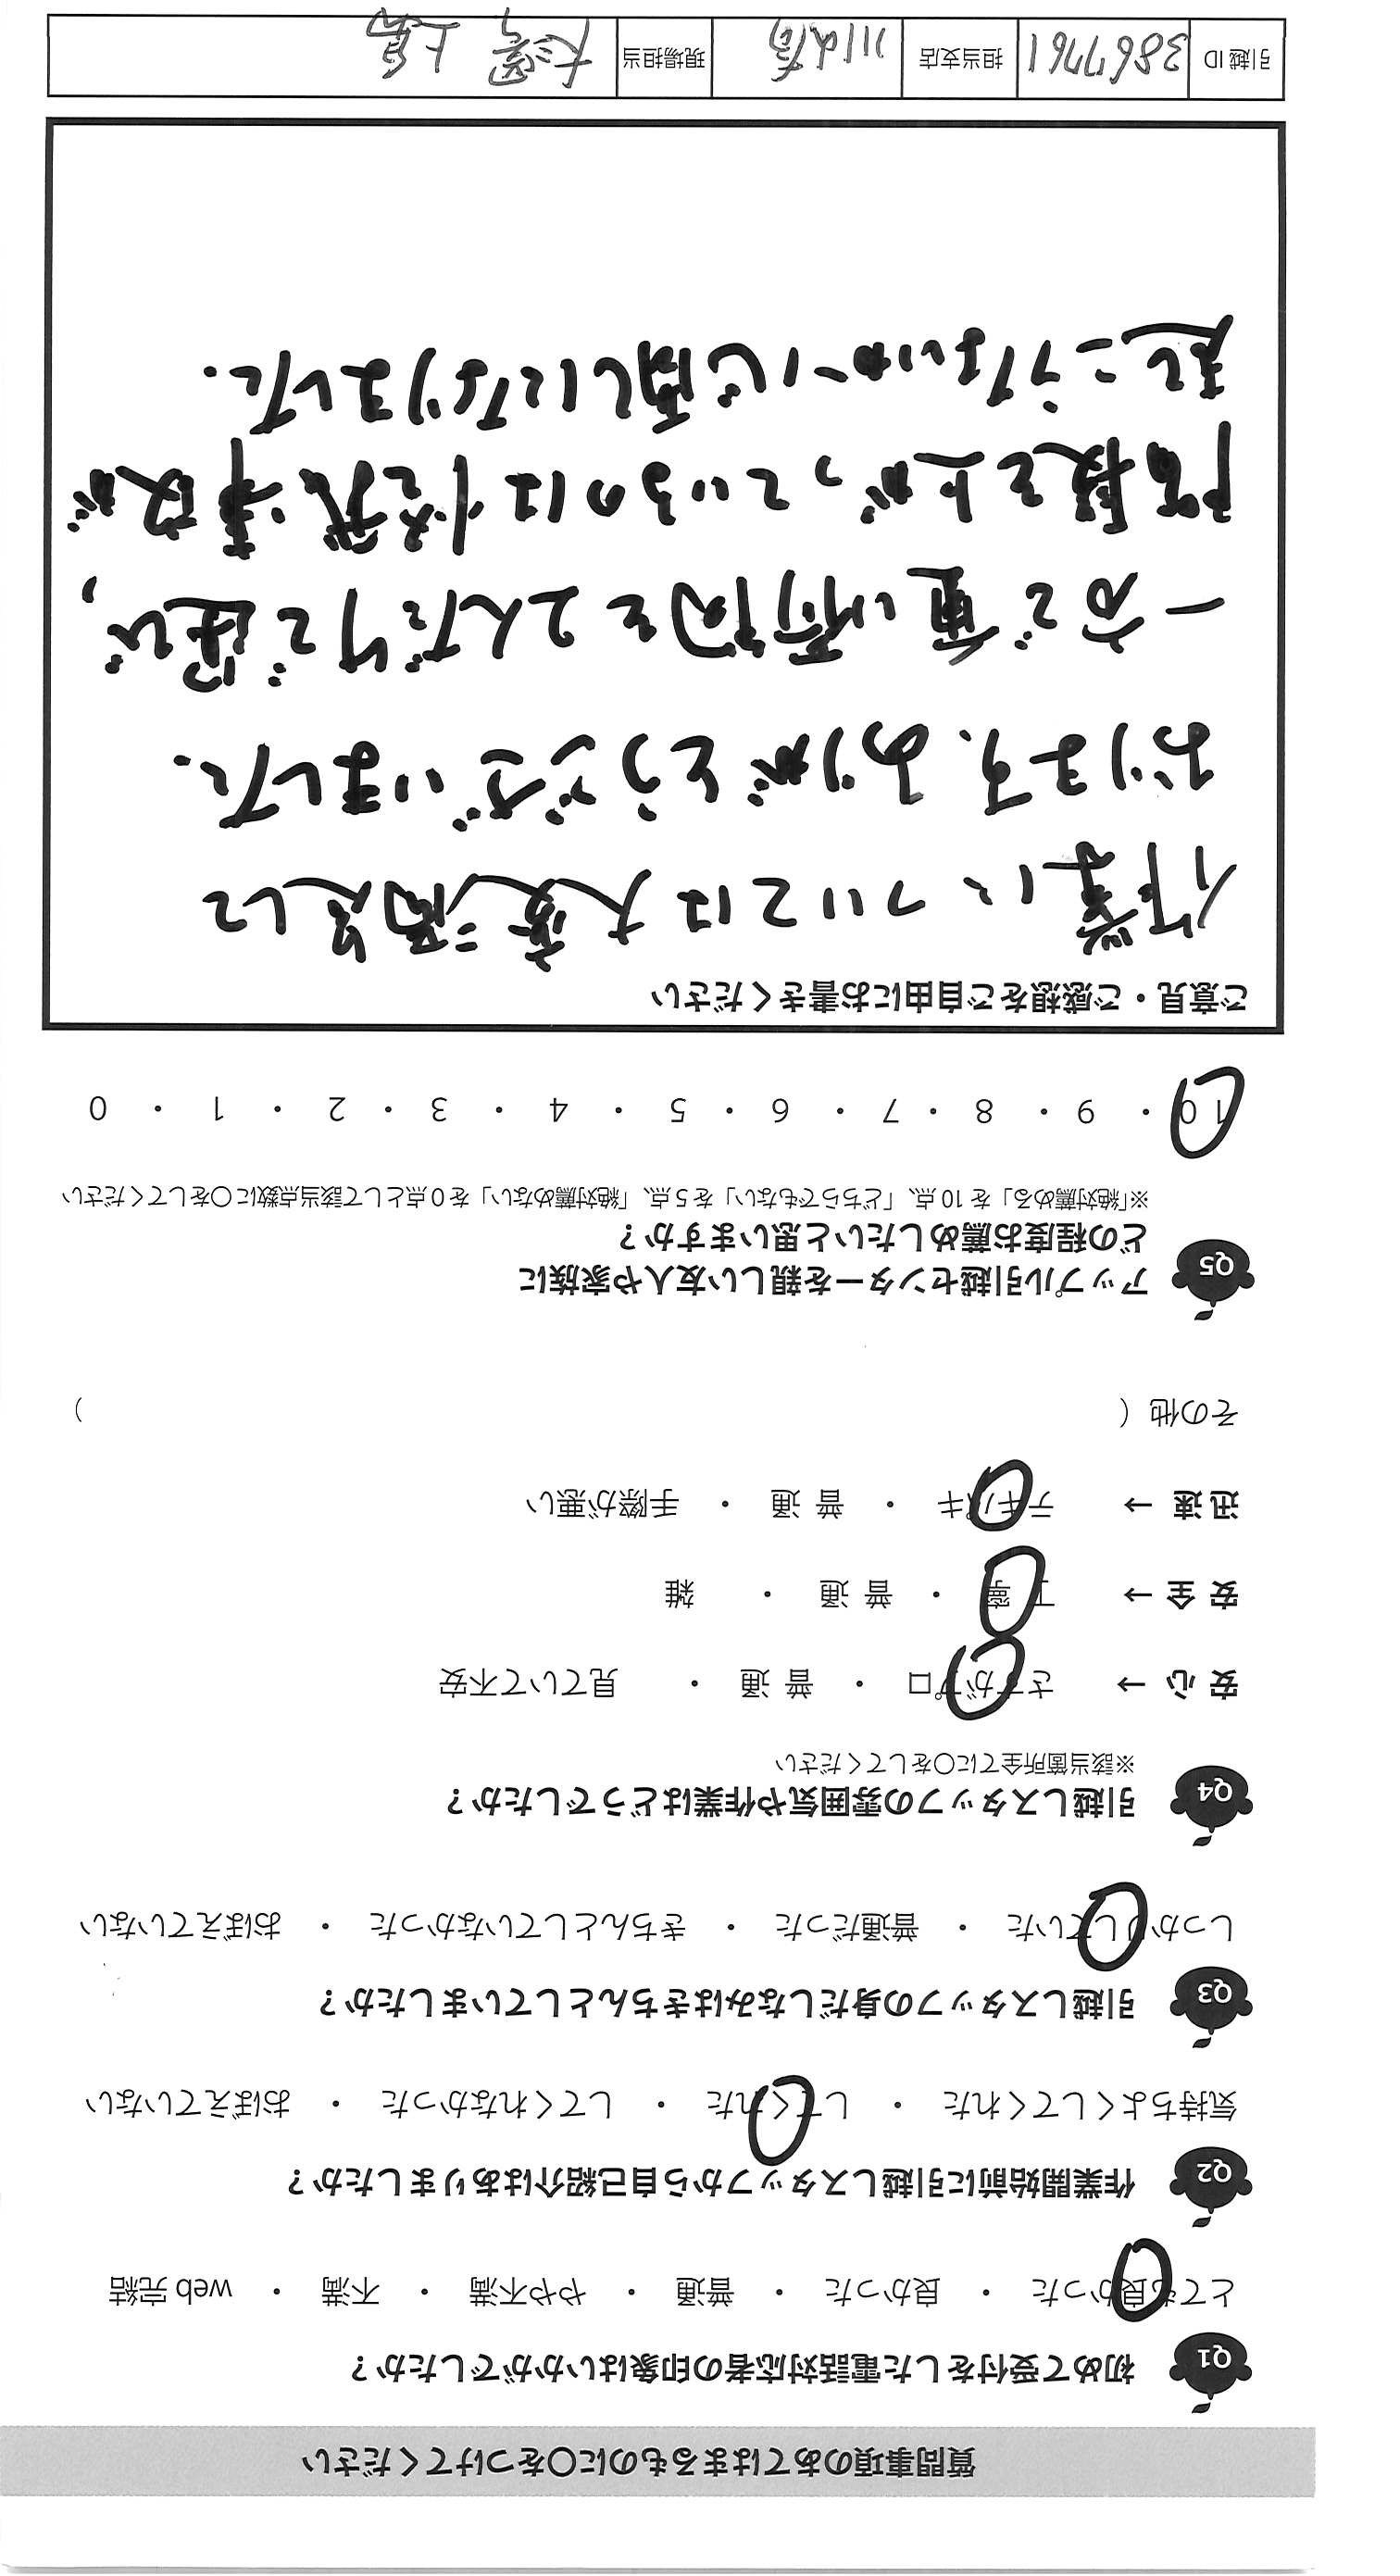 質問事項のあてはまるものに〇をつけてください
Q1 初めて受付をした電話対応者の印象はいかがでしたか？
とても良かった ・ 良かった ・ 普通 ・ やや不満 ・ 不満 ・ web 完結
Q2 作業開始前に引越しスタッフから自己紹介はありましたか？
気持ちよくしてくれた ・ してくれた ・ してくれなかった ・ おぼえていない
Q3 引越しスタッフの身だしなみはきちんとしていましたか？
しっかりしていた ・ 普通だった ・ きちんとしていなかった ・ おぼえていない
Q4 引越しスタッフの雰囲気や作業はどうでしたか？
※該当箇所全てに〇をしてください
安 心 → さすがプロ ・ 普 通 ・ 見ていて不安
安 全 → 丁 寧 ・ 普 通 ・ 雑
迅 速 → テキパキ ・ 普 通 ・ 手際が悪い
その他（ ）
Q5 アップル引越センターを親しい友人や家族に
どの程度お薦めしたいと思いますか？
※「絶対薦める」を 10 点、「どちらでもない」を 5 点、「絶対薦めない」を 0 点として該当点数に〇をしてください
10 ・ 9 ・ 8 ・ 7 ・ 6 ・ 5 ・ 4 ・ 3 ・ 2 ・ 1 ・ 0
ご意見・ご感想をご自由にお書きください
作業については大変満足して
おります。ありがとうございました。
一方で重い荷物を2人だけで運び、
階段を上がっているのは怪我、事故が
起こらないか心配になりました.
引越 ID 38677761 担当支店 川崎 現場担当 大澤 上島